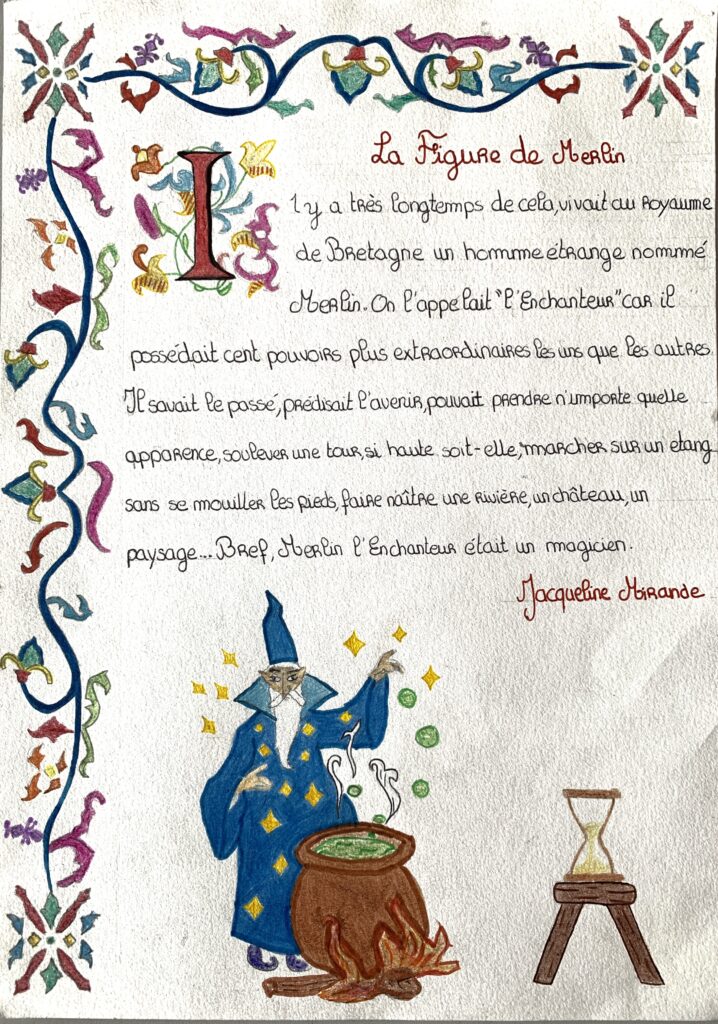 La Figure de Merlin
Il y a très longtemps de cela, vivait au royaume
de Bretagne un homme étrange nommé
Merlin. On l'appelait "l'Enchanteur" car il
possédait cent pouvoirs plus extraordinaires les uns que les autres.
Il savait le passé, prédisait l'avenir, pouvait prendre n'importe quelle
apparence, soulever une tour, si haute soit-elle, marcher sur un etang
sans se mouiller les pieds, faire naître une rivière, un château, un
paysage... Bref, Merlin l'Enchanteur était un magicien.
Jacqueline Mirande